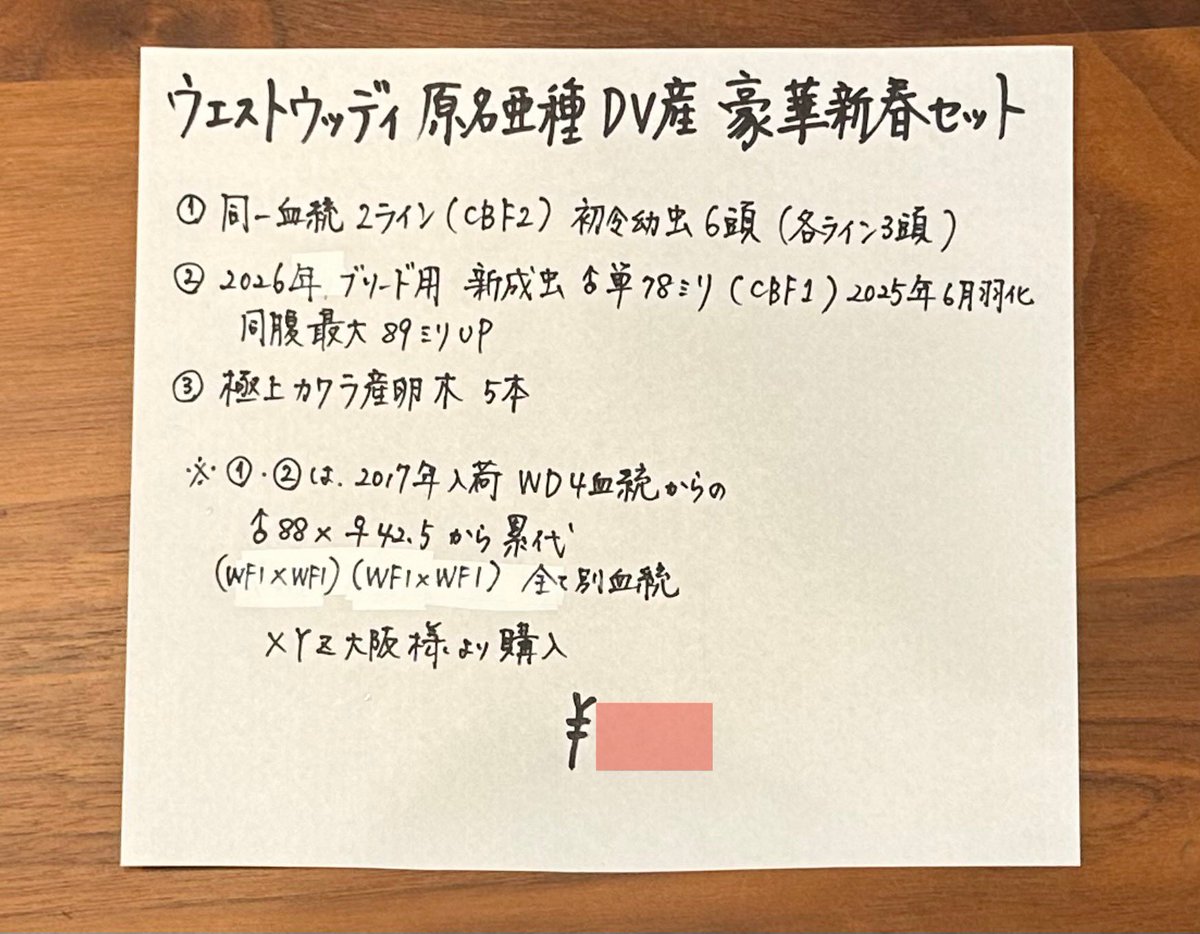 ウエストウッディ 原名亜種 DV産 豪華新春セット
① 同一血統 2ライン(CBF2) 初令幼虫 6頭 (各ライン3頭)
② 2026年 ブリード用 新成虫 ♂単78ミリ(CBF1) 2025年6月羽化
同腹最大 89ミリUP
③ 極上カワラ産卵木 5本
※ ①・②は、2017年入荷 WD4血統からの
♂88×♀42.5 から累代
(WF1×WF1)(WF1×WF1) 全て別血統
XYZ大阪様より購入
¥